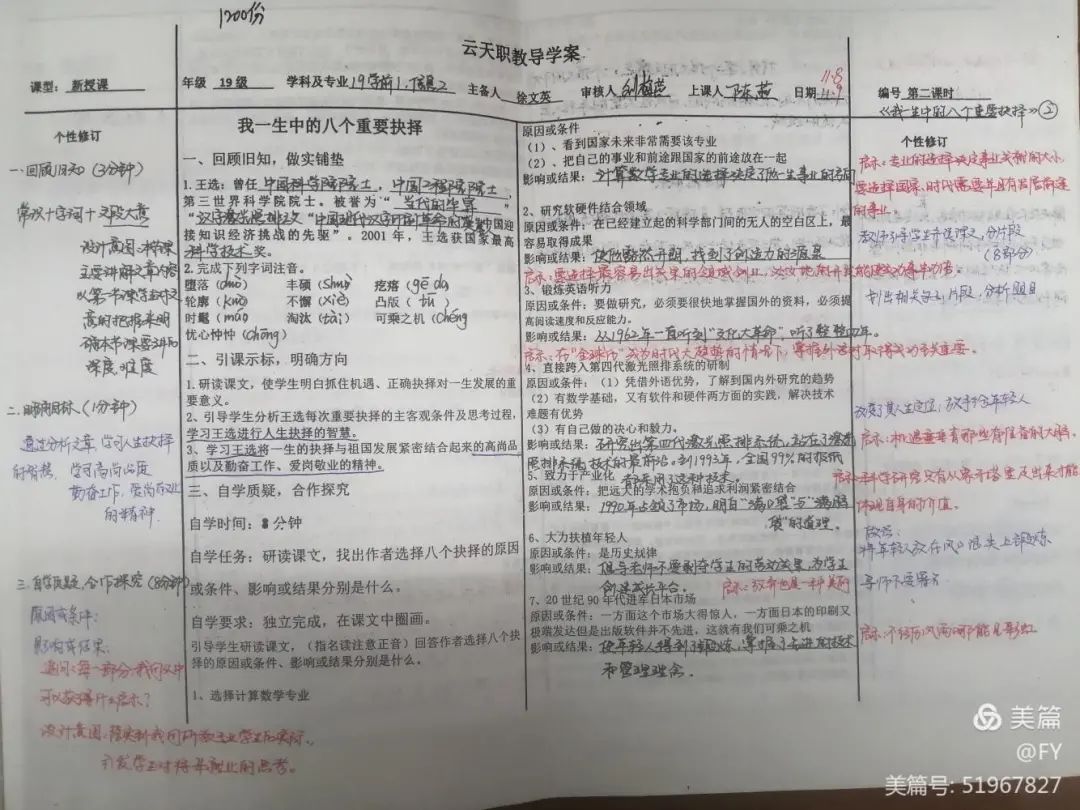 1200份
云天职教导学案
课型: 新授课
年级 19级 学科及专业 19学前1、 主备人 徐文英 审核人 上课人 陈茜 日期 11-8 11-9
编号 第二课时
《我一生中的八个重要抉择》②
个性修订
一.回顾旧知(3分钟)
常识十字词十文段大意
设计意图:本节课
主要讲解文章内容
深度、难度
二.明确目标.(1分钟)
通过分析文章,学习人生抉择
的智慧,学习高尚品质
勤奋工作,爱岗敬业
的精神.
三.自学质疑,合作探究(8分钟)
原因或条件:
影响或结果:
追问:每一部分,我们从中
可以获得什么启示?
引发学生对将来就业的思考。
我一生中的八个重要抉择
一、回顾旧知,做实铺垫
1.王选:曾任 中国科学院院士,中国工程院院士,
第三世界科学院院士。被誉为“ 当代的毕昇 ”
“汉字激光照排之父”“中国现代汉字印刷革命的奠基人”“中国迎
接知识经济挑战的先驱”。2001年,王选获国家最高
科学技术奖。
2.完成下列字词注音。
堕落(duò) 丰硕(shuò) 疙瘩(gē da)
轮廓(kuò) 不懈(xiè) 凸版(tū)
时髦(máo) 淘汰(tài) 可乘之机(chéng)
忧心忡忡(chōng)
二、引课示标,明确方向
1.研读课文,使学生明白抓住机遇、正确抉择对一生发展的重
要意义。
2、引导学生分析王选每次重要抉择的主客观条件及思考过程,
学习王选进行人生抉择的智慧。
3、学习王选将一生的抉择与祖国发展紧密结合起来的高尚品
质以及勤奋工作、爱岗敬业的精神。
三、自学质疑,合作探究
自学时间:8分钟
自学任务:研读课文,找出作者选择八个抉择的原因
或条件、影响或结果分别是什么。
自学要求:独立完成,在课文中圈画。
引导学生研读课文,(指名读注意正音)回答作者选择八个抉
择的原因或条件、影响或结果分别是什么。
1、选择计算数学专业
原因或条件
(1)、看到国家未来非常需要该专业
(2)、把自己的事业和前途跟国家的前途放在一起
影响或结果:计算数学专业的选择决定了他一生事业的方向
2、研究软硬件结合领域
原因或条件:在已经建立起的科学部门间的无人的空白区上,最
容易取得成果
影响或结果:使他豁然开朗,找到了创造力的源泉
3、锻炼英语听力
原因或条件:要做研究,必须要很快地掌握国外的资料,必须提
高阅读速度和反应能力。
影响或结果:从1962年一直听到“文化大革命”听了整整四年。
4、直接跨入第四代激光照排系统的研制
原因或条件:(1)凭借外语优势,了解到国内外研究的趋势
(2)有数学基础,又有软件和硬件两方面的实践,解决技术
难题有优势
(3)有自己做的决心和毅力。
影响或结果:研究出第四代激光照排系统,站在了激光
照排系统技术的最前沿。到1993年,全国99%的报纸
都采用了这种技术。
5、致力于产业化
原因或条件:把远大的学术抱负和追求利润紧密结合
影响或结果:1990年占领了市场,明白“满口袋”与“满脑
袋”的道理。
6、大力扶植年轻人
原因或条件:是历史规律
影响或结果:倡导老师不要剥夺学生的劳动成果,为学生
创造成长平台。
启示:放弃也是一种美丽
7、20世纪90年代进军日本市场
原因或条件:一方面这个市场大得惊人,一方面日本的印刷又
极端发达但是出版软件并不先进,这就有我们可乘之机
影响或结果:使年轻人得到了锻炼,掌握了先进的技术
和管理理念.
个性修订
启示:专业的选择决定事业贡献的大小,
要选择国家、时代需要并且有发展前途
的事业。
教师引导学生开读课文,分片段
(8部分)
划出相关句子、片段,分析题目
改变了其人生定位,放手于年轻人
启示:机遇垂青那些有准备的大脑.
体现自身的价值.
将年轻人放在风口浪尖上锻炼
启示:不经历风雨哪能见彩虹
美篇
@FY
美篇号: 51967827